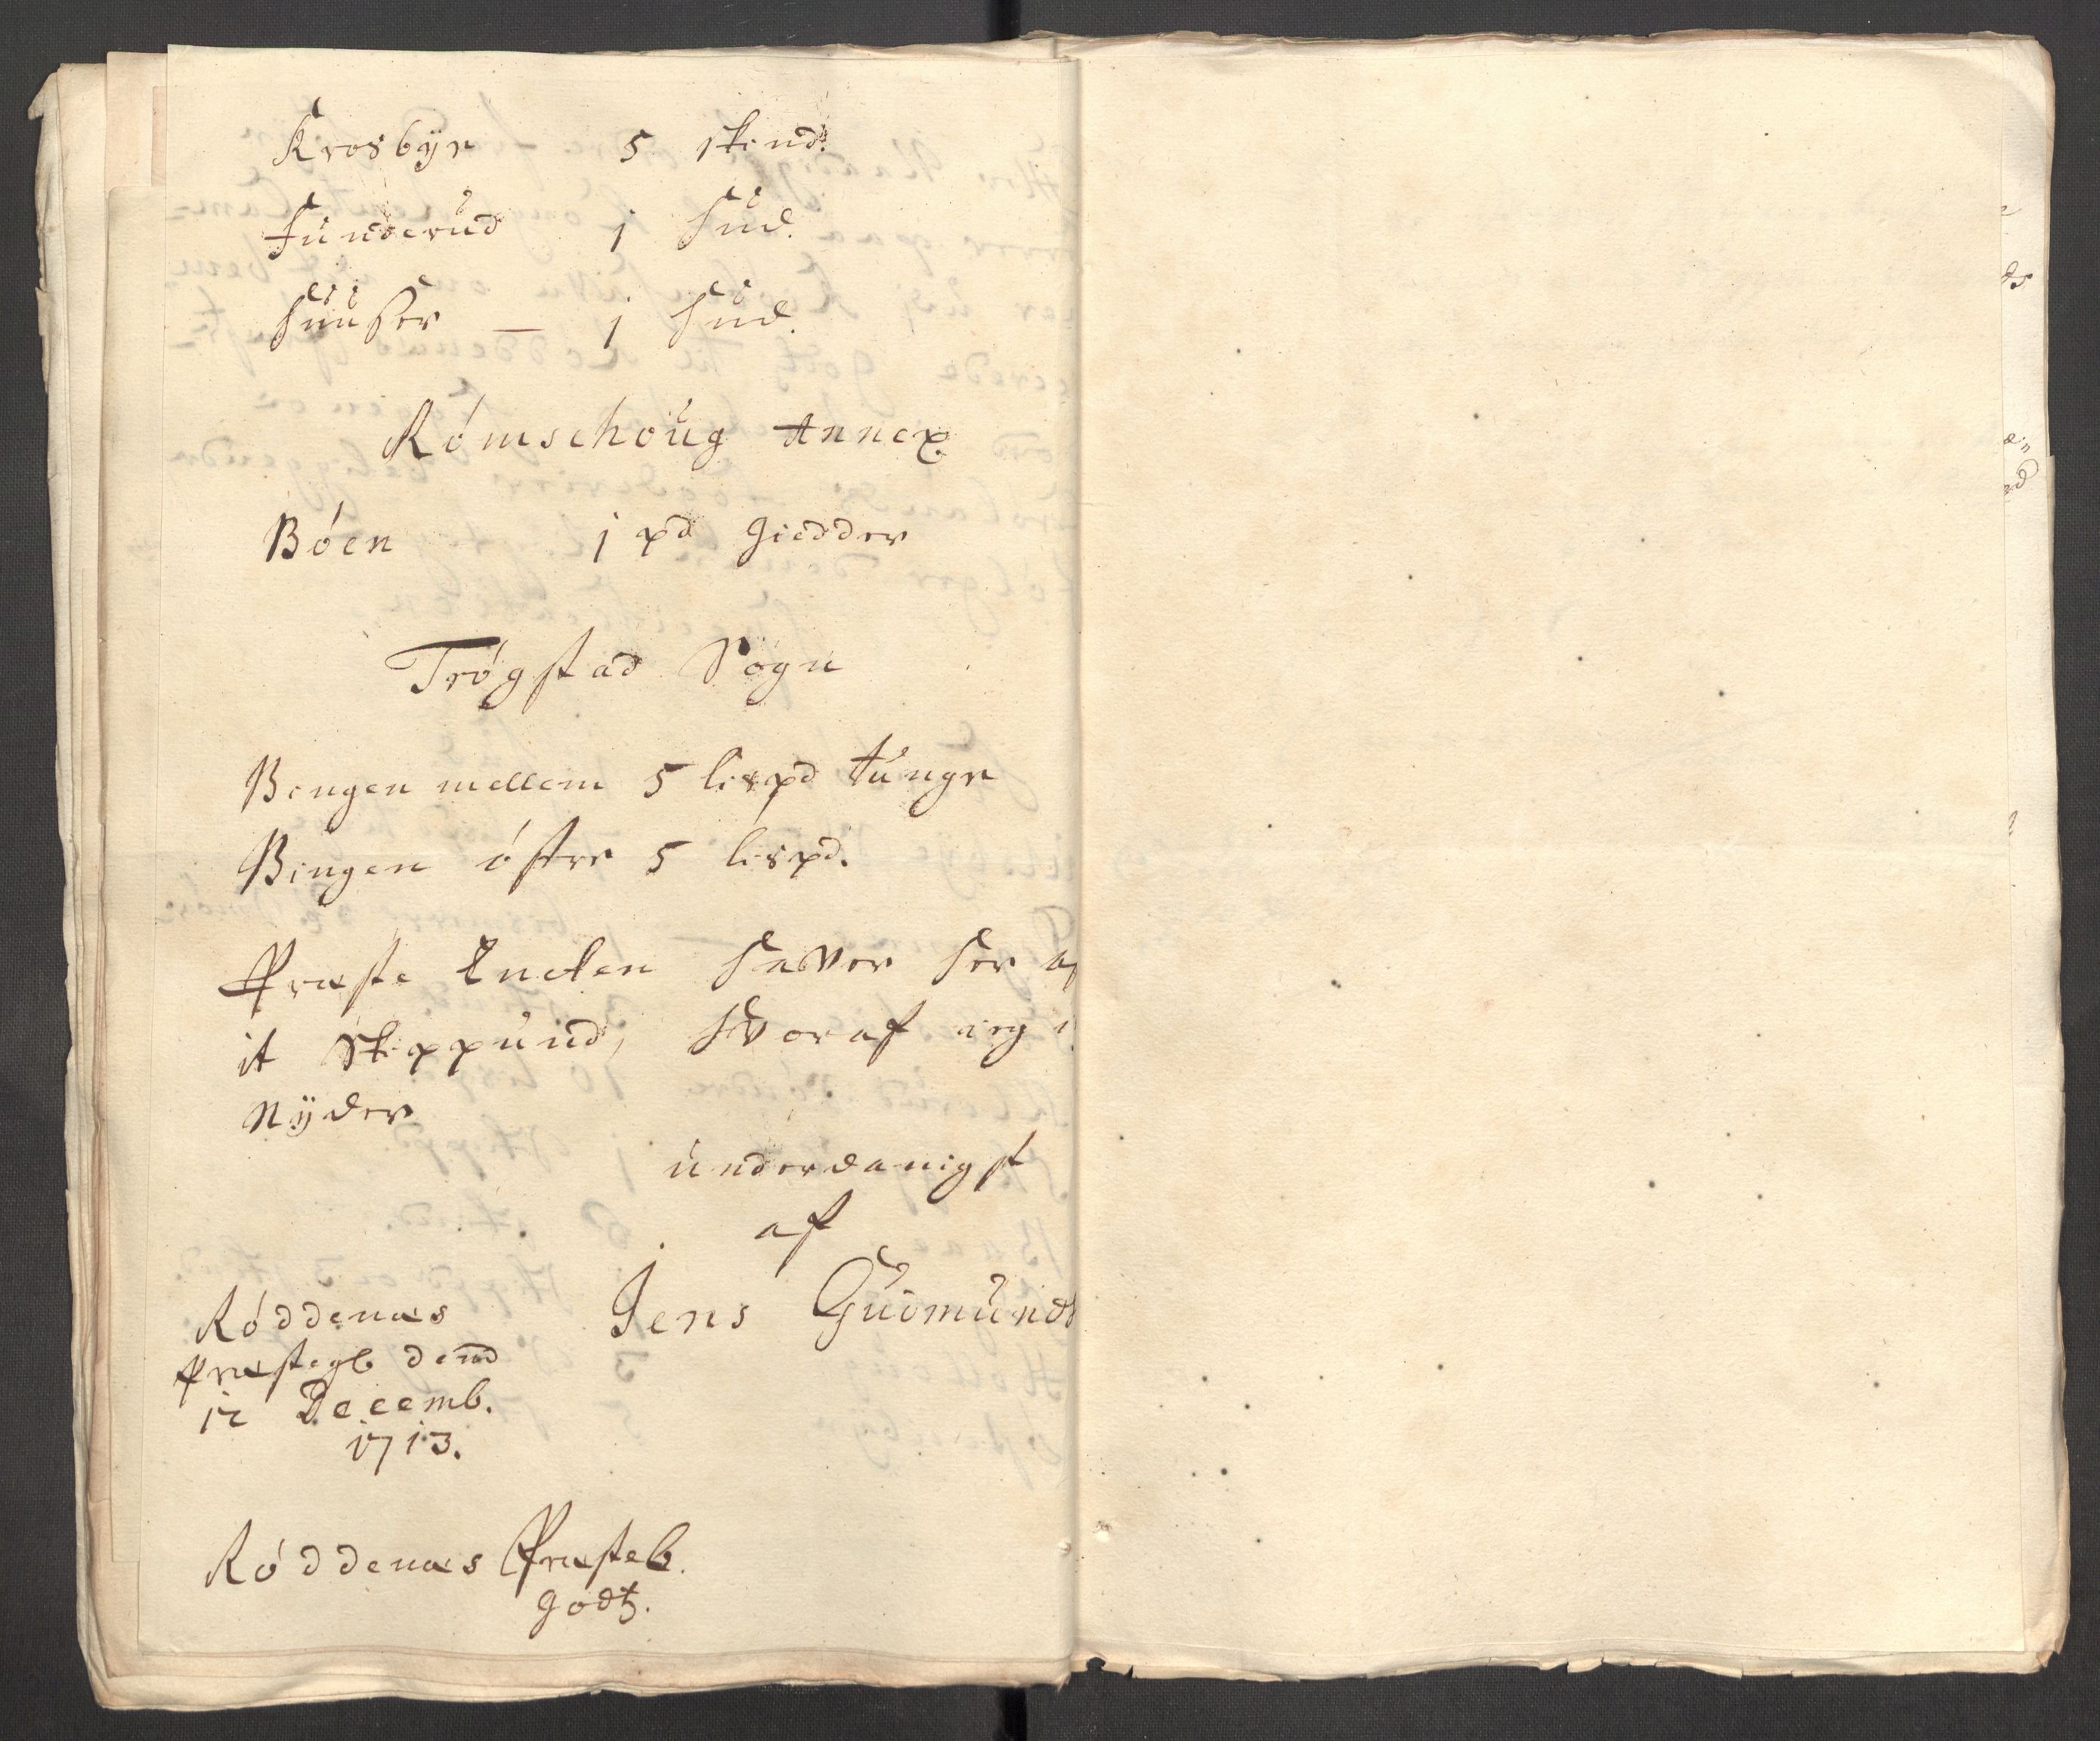 Krosbÿr 5 skind.
Funderud j Hud.
Huuser — j Hud.
Rómschoug Annex.
Bóen j pd giedder
Trógstad Sogn
Bengen mellem 5 lispd tunge
Bengen óstre 5 lispd.
Præste Encken haver her af
it Skippund, hvoraf ieg i
Nÿder
underdanigst
af
Jens Gudmunds
Róddenæs
Præstegb dend
12 Decemb.
1713.
Róddenæs Præsteb.
godtz.